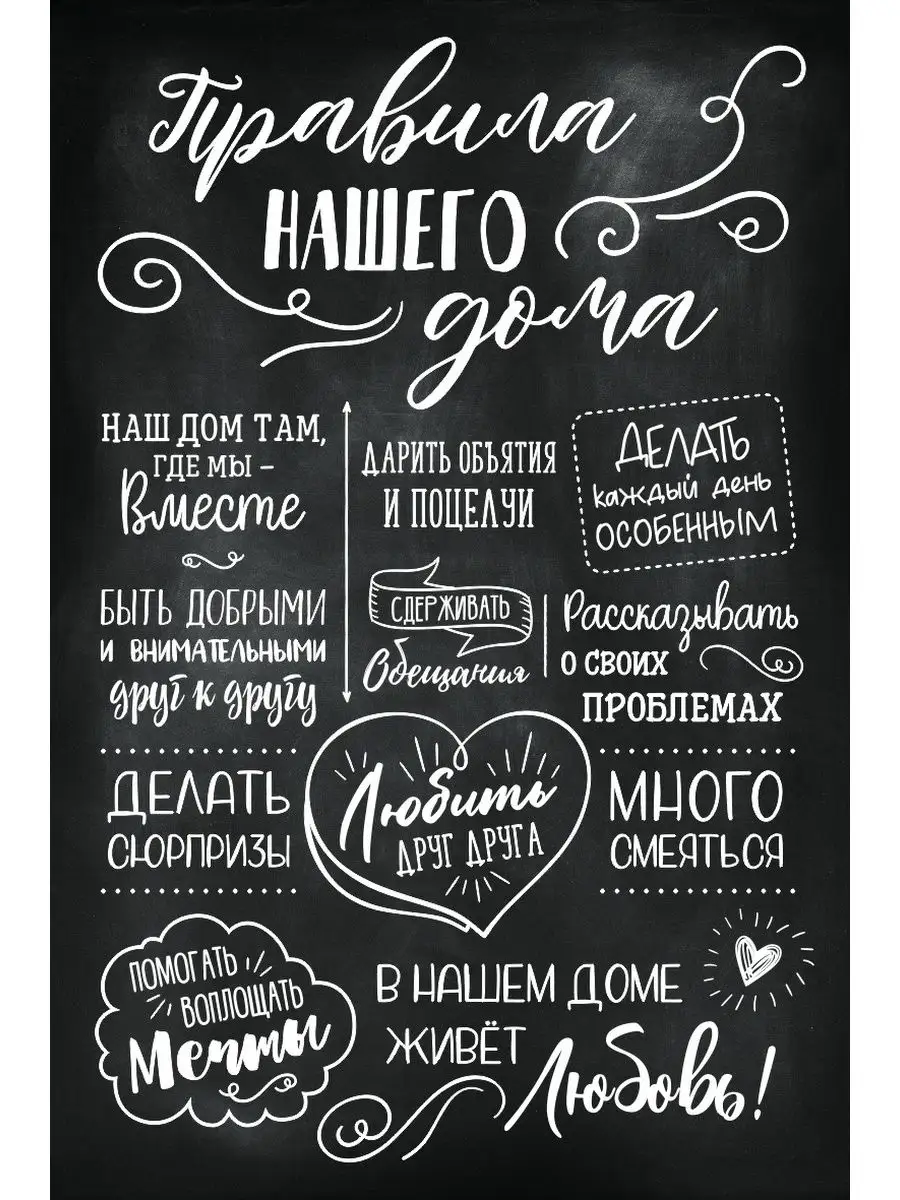 Правила
НАШЕГО
дома
НАШ ДОМ ТАМ,
ГДЕ МЫ –
Вместе
БЫТЬ ДОБРЫМИ
И ВНИМАТЕЛЬНЫМИ
друг к другу
ДАРИТЬ ОБЪЯТИЯ
И ПОЦЕЛУИ
СДЕРЖИВАТЬ
Обещания
ДЕЛАТЬ
каждый день
ОСОБЕННЫМ
Рассказывать
О СВОИХ
ПРОБЛЕМАХ
ДЕЛАТЬ
СЮРПРИЗЫ
Любить
ДРУГ ДРУГА
МНОГО
СМЕЯТЬСЯ
ПОМОГАТЬ
ВОПЛОЩАТЬ
Мечты
В НАШЕМ ДОМЕ
ЖИВЁТ
Любовь!